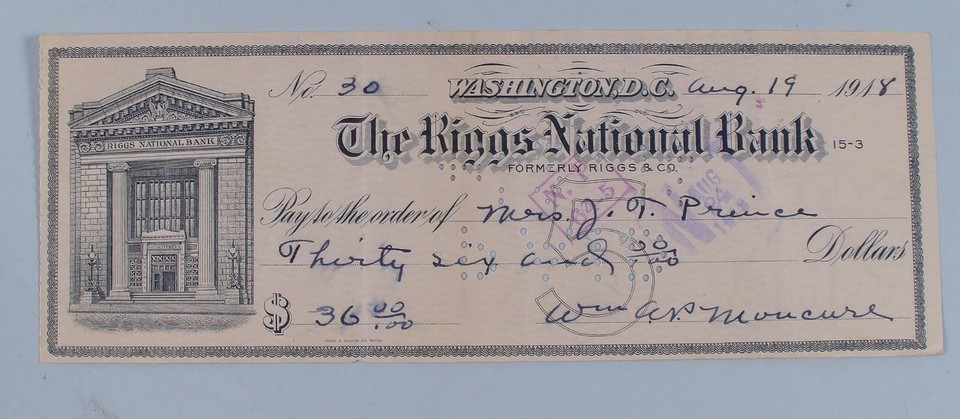 No. 30 WASHINGTON, D.C. Aug. 19 1918
The Riggs National Bank 15-3
FORMERLY RIGGS & CO.
RIGGS NATIONAL BANK
Pay to the order of Mrs. J. T. Prince
Thirty six and 00/100 Dollars
$ 36 00/100
Wm A.P. Moncure
AUG
24